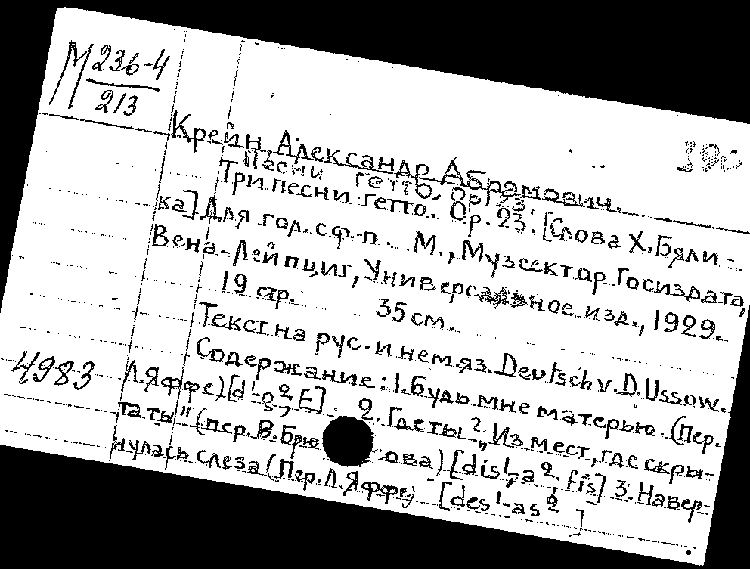 М 236-4
213
Крейн, Александр Абрамович.
Песни гетто. Ор. 23.
Три песни гетто. Ор. 23. [Слова Х. Бяли-
ка] Для гол. с ф-п. М., Музсектор Госиздата,
Вена-Лейпциг, Универсальное изд., 1929.
19 стр. 35 см.
Текст на рус. и нем. яз. Deutsch v. D. Ussow.
Содержание: 1. Будь мне матерью. (Пер.
Л. Яффе) 2. Где ты? "Из мест, где скры-
таты" (пер. В. Брю ова) [dis¹-a² fis] 3. Навер-
нулась слеза (Пер. Л. Яффе) [des¹-as²]
4983